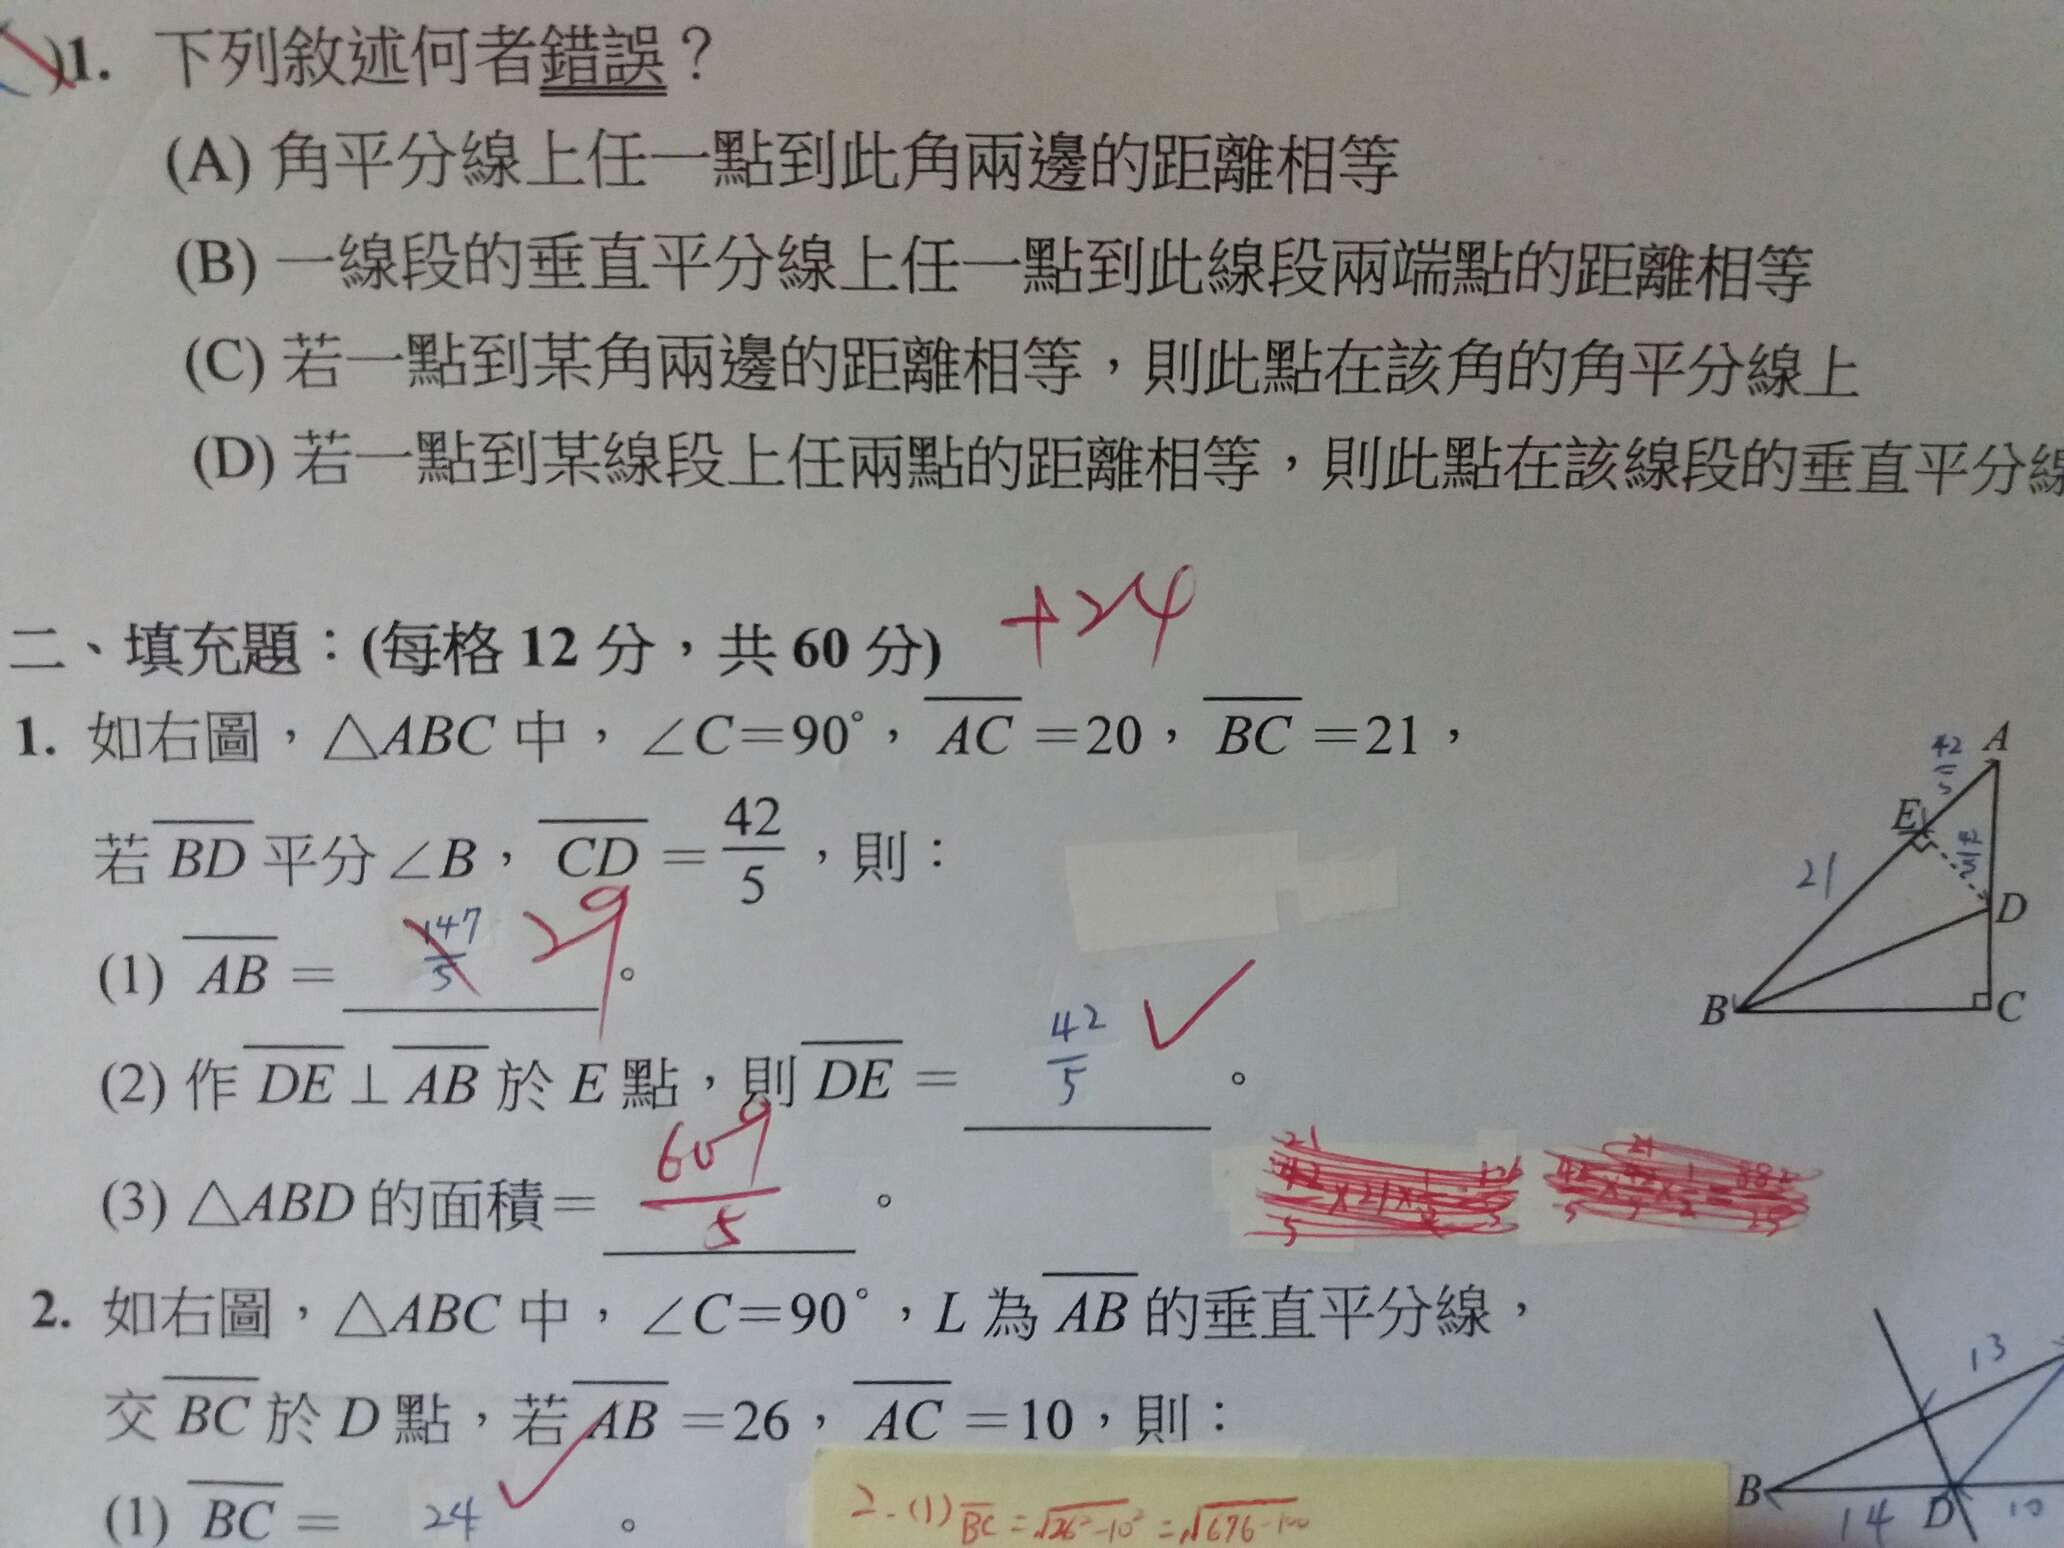 )1. 下列敘述何者錯誤？
(A) 角平分線上任一點到此角兩邊的距離相等
(B) 一線段的垂直平分線上任一點到此線段兩端點的距離相等
(C) 若一點到某角兩邊的距離相等，則此點在該角的角平分線上
(D) 若一點到某線段上任兩點的距離相等，則此點在該線段的垂直平分線
二、填充題：(每格 12 分，共 60 分) +24
1. 如右圖，△ABC 中，∠C=90°，AC=20，BC=21，
若 BD 平分∠B，CD=42/5，則：
(1) AB= 147/5 29。
(2) 作 DE⊥AB 於 E 點，則 DE= 42/5。
(3) △ABD 的面積= 609/5。
42/5 A
E
21
D
B C
2. 如右圖，△ABC 中，∠C=90°，L 為 AB 的垂直平分線，
交 BC 於 D 點，若 AB=26，AC=10，則：
(1) BC= 24。
2.(1) BC=√26²-10²=√676-100
13
B D
14 10